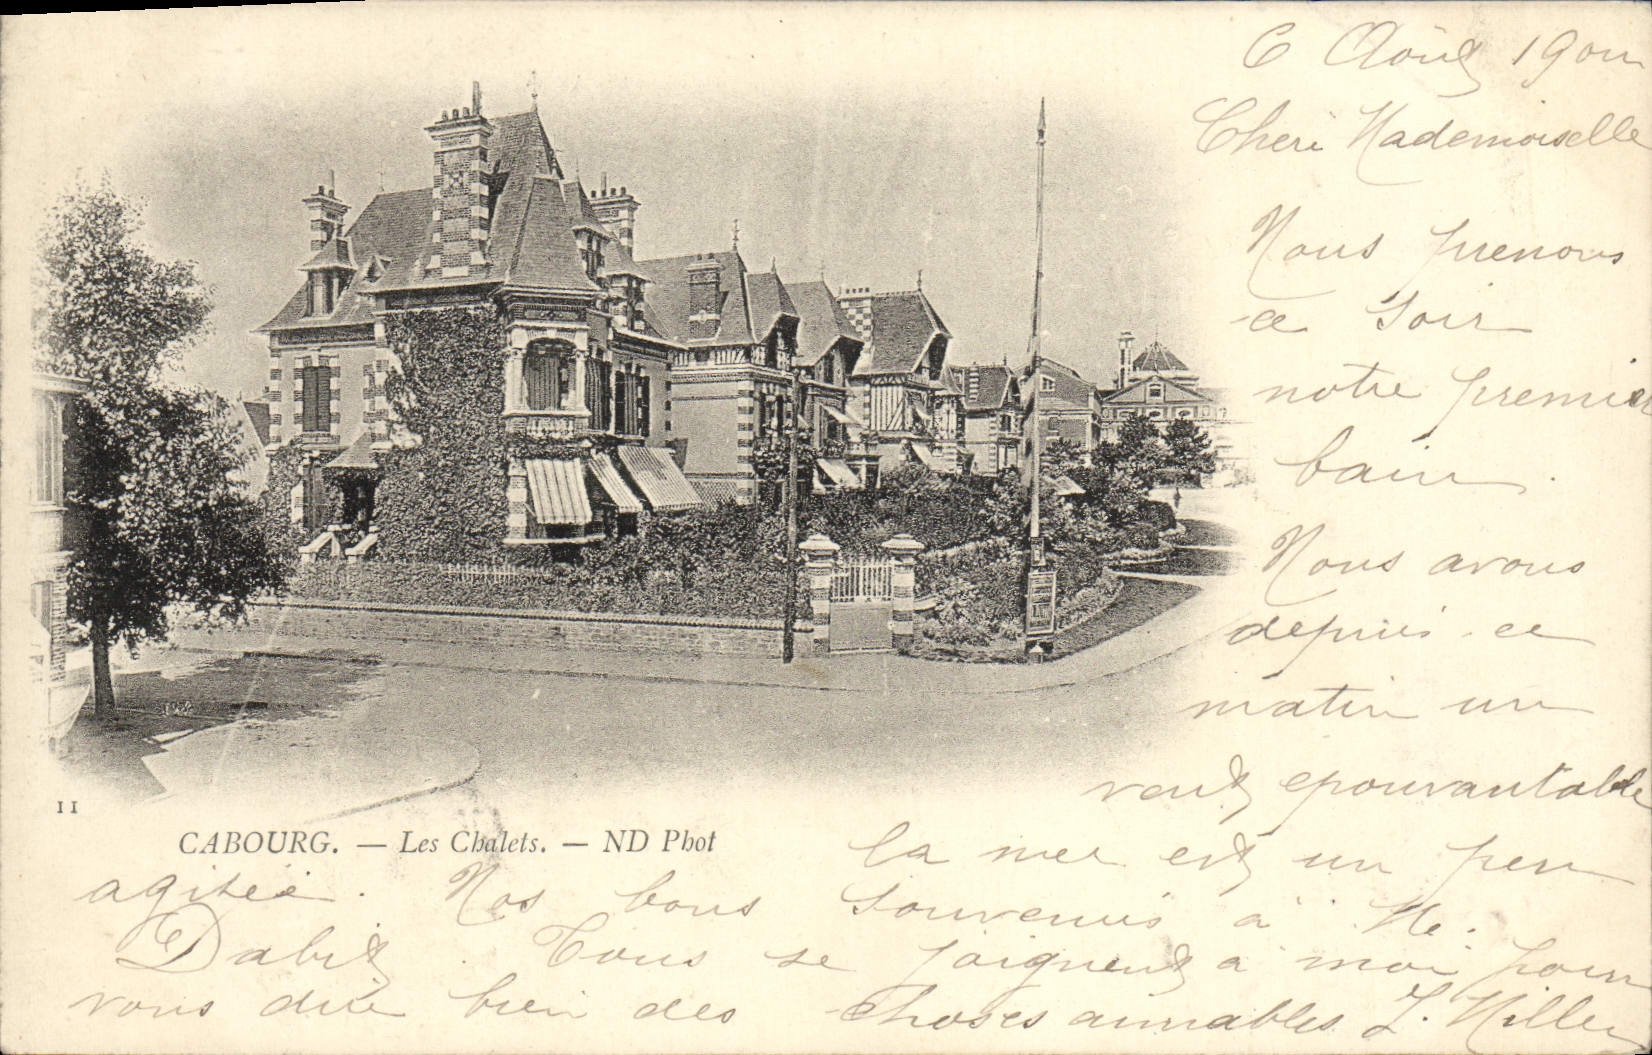 6 Août 1900
Cheri Mademoiselle
Nous prenons
ce soir
notre premier
bain.
Nous avons
depuis ce
matin un
vent epouvantable
11
CABOURG. — Les Chalets. — ND Phot
la mer est un peu
agitée. Nos bons souvenirs à
Dabit. Tous se joignent à moi pour
vous dire bien des choses aimables